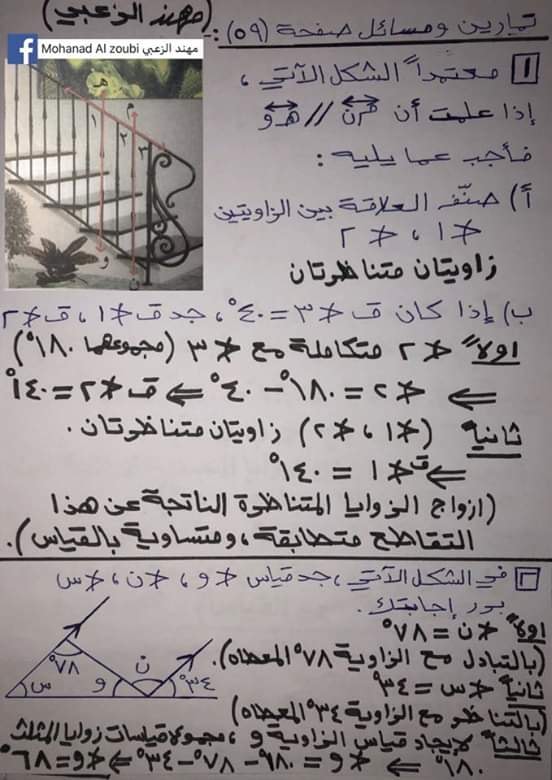 تمارين ومسائل صفحة (٥٩):-
(مهند الزعبي)
Mohanad Al zoubi مهند الزعبي
١ معتمداً الشكل الآتي،
إذا علمت أن م ن // هـ و
فأجب عما يليه:
أ) صنّف العلاقة بين الزاويتين
∢١ ، ∢٢
زاويتان متناظرتان
هـ
م
١
٢
٣
و
ن
ب) إذا كان ق∢٣ = ٤٠°، جد ق∢١، ق∢٢
اولاً ∢٢ متكاملة مع ∢٣ (مجموعهما ١٨٠°)
⇐ ∢٢ = ١٨٠° - ٤٠° ⇐ ق∢٢ = ١٤٠°
ثانياً (∢١، ∢٢) زاويتان متناظرتان.
⇐ ق∢١ = ١٤٠°
(ازواج الزوايا المتناظرة الناتجة عن هذا
التقاطع متطابقة، ومتساوية بالقياس).
٢ في الشكل الآتي، جد قياس ∢و، ∢ن، ∢س
برر إجابتك.
اولاً ∢ن = ٧٨°
(بالتبادل مع الزاوية ٧٨° المعطاه).
ثانياً ∢س = ٣٤°
(بالتناظر مع الزاوية ٣٤° المعطاه)
ثالثاً لايجاد قياس الزاوية و، مجموع قياسات زوايا المثلث
١٨٠° ⇐ ∢و = ١٨٠° - ٧٨° - ٣٤° ⇐ ∢و = ٦٨°
٧٨°
س
و
ن
٣٤°